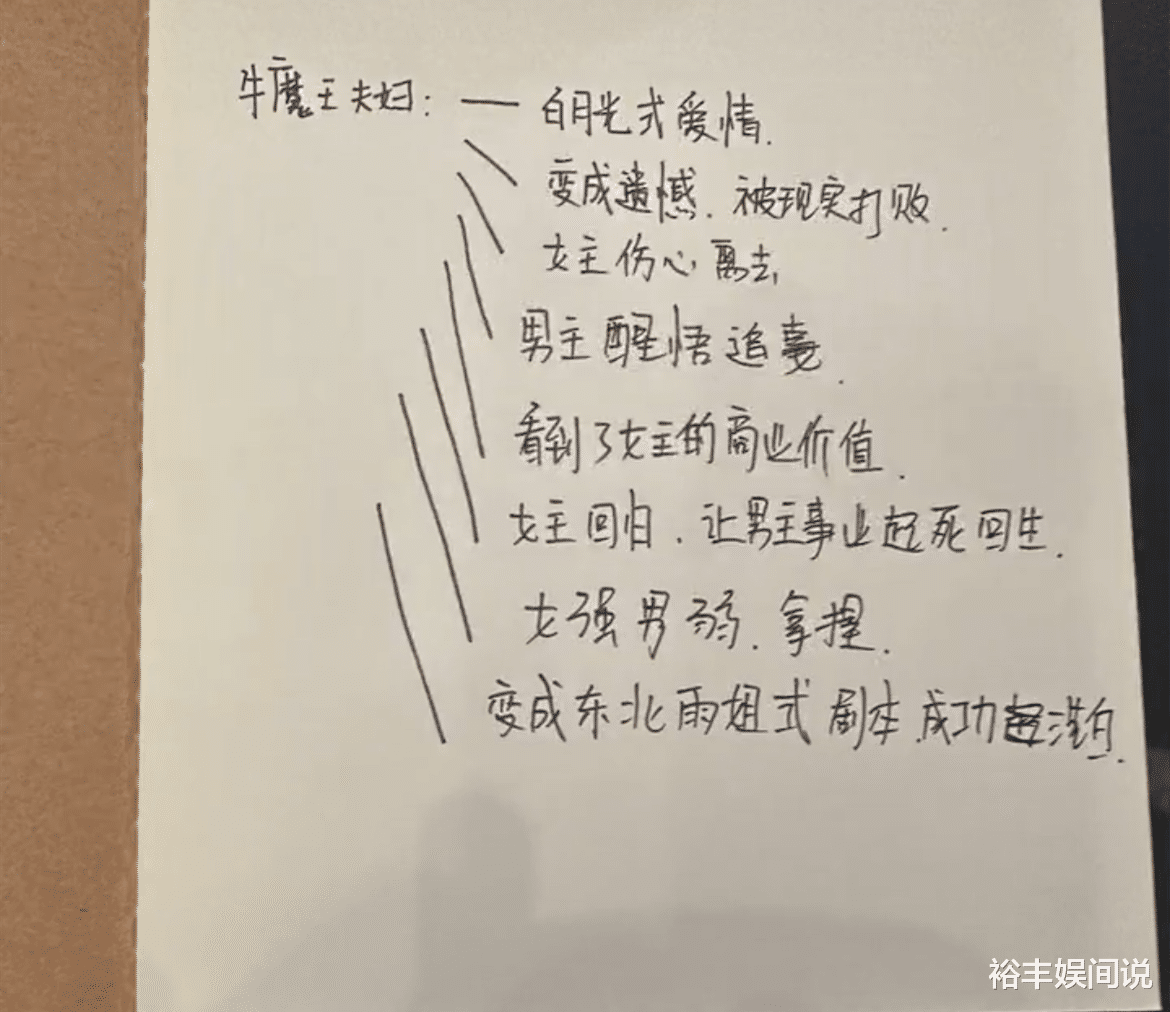 牛魔王夫妇：— 白月光式爱情.
变成遗憾.被现实打败.
女主伤心离去,
男主醒悟追妻.
看到了女主的商业价值.
女主回归.让男主事业起死回生.
女强男弱.拿捏.
变成东北雨姐式剧本.成功洗白.
裕丰娱间说